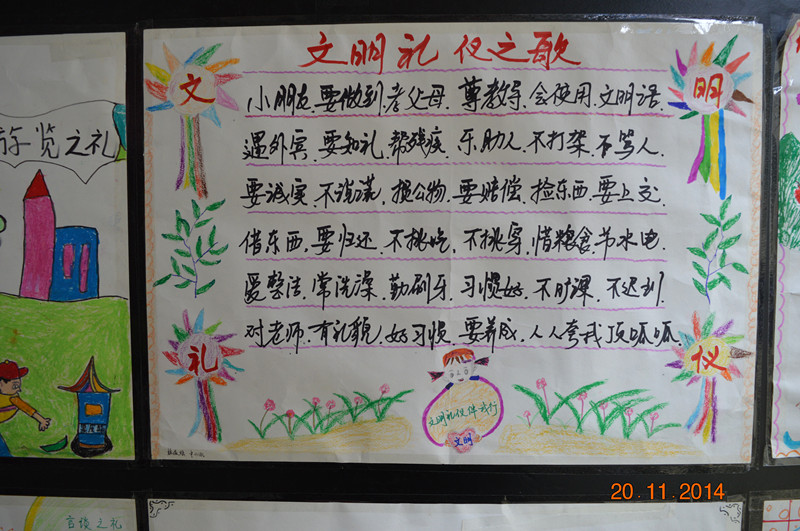 文明礼仪之歌
文
明
小朋友.要做到.孝父母.尊教导.会使用.文明语.
遇外宾.要知礼.帮残疾.乐助人.不打架.不骂人.
要诚实.不说谎.损公物.要赔偿.捡东西.要上交
借东西.要归还.不挑吃.不挑穿.惜粮食.节水电
爱整洁.常洗澡.勤刷牙.习惯好.不旷课.不迟到.
对老师.有礼貌.好习惯.要养成.人人夸我顶呱呱.
礼
仪
文明礼仪伴我行
文明
游览之礼
之礼
20.11.2014